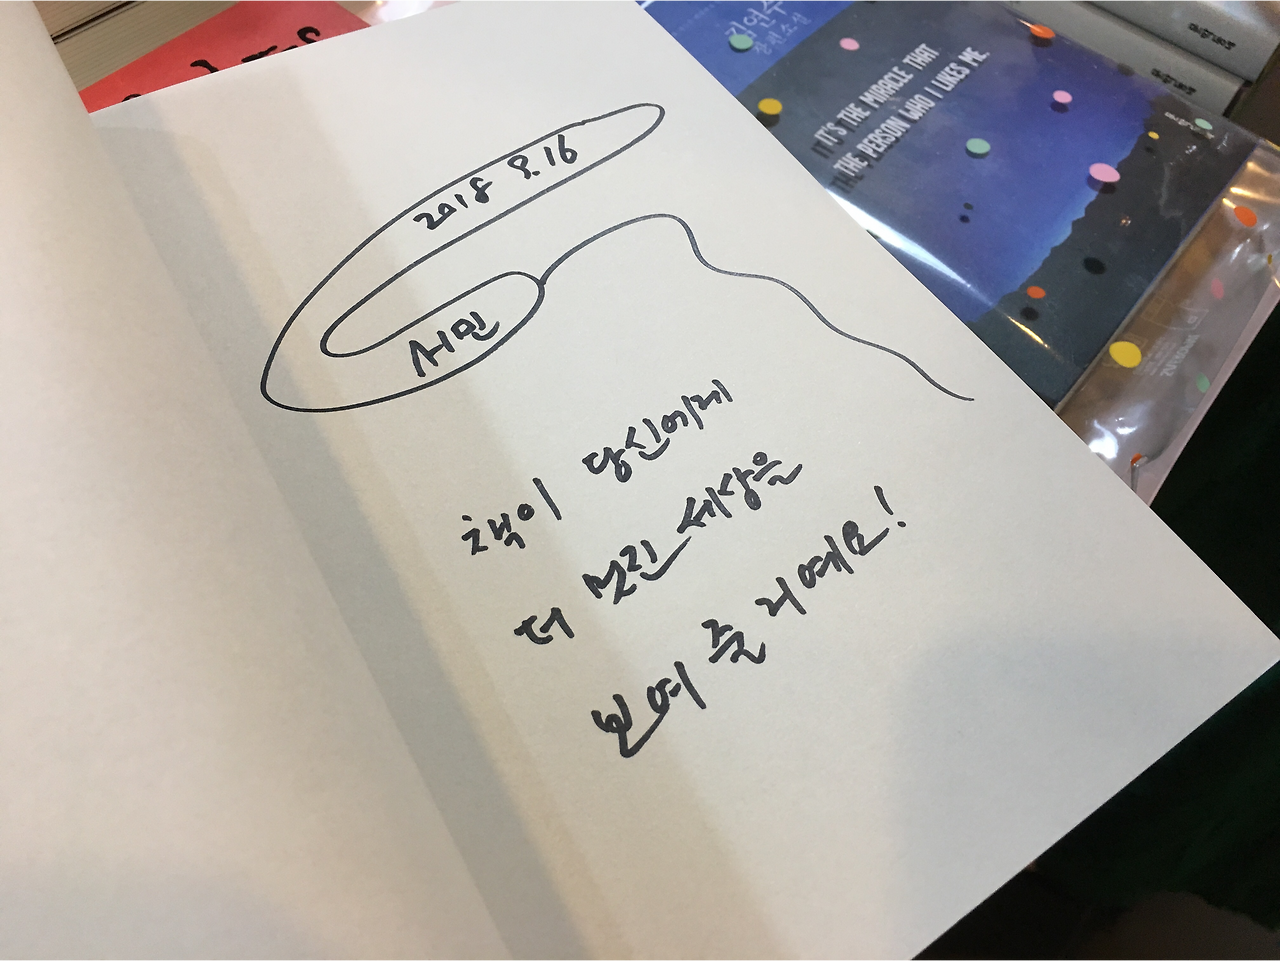 2018 9.16
서민
책이 당신에게
더 멋진 세상을
보여 줄 거예요!
김연수
장편소설
IT'S THE MIRACLE THAT
THE PERSON WHO I LIKES ME.